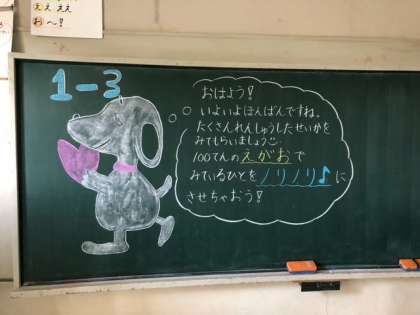 え え え
お〜!!
1-3
おはよう!
いよいよほんばんですね。
たくさんれんしゅうしたせいかを
みてもらいましょうご。
100てんのえがおで
みているひとをノリノリ♪に
させちゃおう!